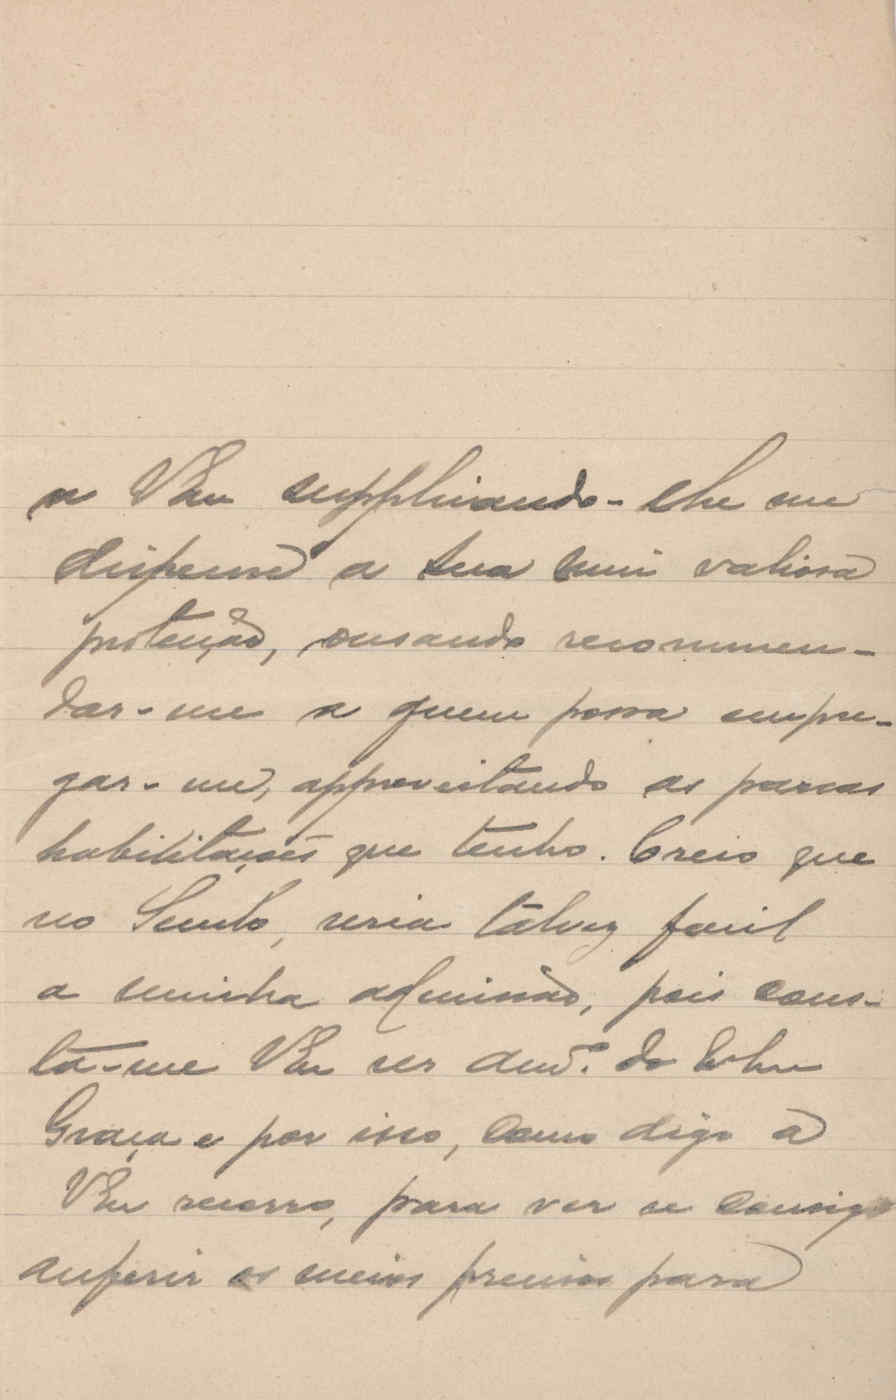 a VEx supplicando-lhe me
dispense a sua mui valiosa
proteção, ousando recommen-
dar-me a quem possa empre-
gar-me, approveitando as parcas
habilitações que tenho. Creio que
no Seculo, seria talvez facil
a minha admissão, pois cons-
ta-me VEx ser amº. do
Graça e por isso, como digo a
VEx recorro, para ver se consigo
auferir os meios precisos para